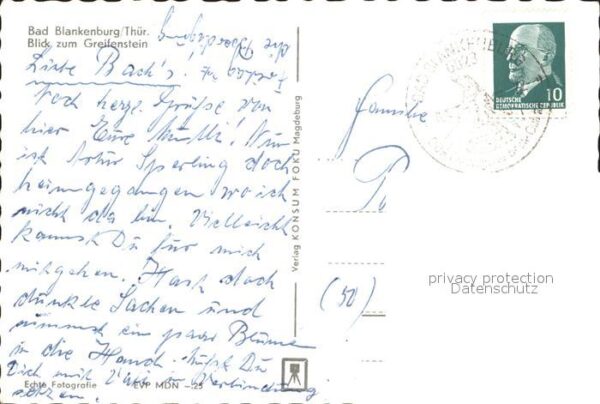 Bad Blankenburg/Thür.
Blick zum Greifenstein
die Beerdigung
Freitag
Liebe Bach's!
Noch herzl. Grüße von
hier Eure Mutti! Nun
ist Sperling doch
heimgegangen wo ich
nicht da bin. Vielleicht
kannst Du für mich
mitgehen. Hast doch
dunkle Sachen und
nimmst ein paar Blumen
in die Hand. Du
Dich mit in Verbindung
setzen.
Echte Fotografie EVP MDN -.25
Verlag KONSUM FOKU Magdeburg
Familie
(50)
DEUTSCHE
DEMOKRATISCHE REPUBLIK
10
6823
privacy protection
Datenschutz